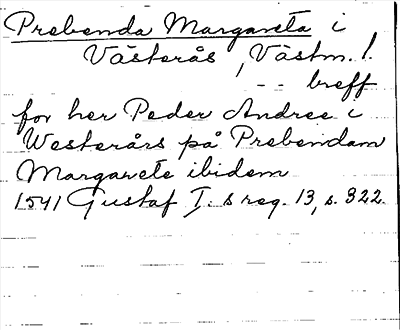 Prebenda Margareta i
Västerås, Västm. l.
-- breff
for her Peder Andree i
Westerårs på Prebendam
Margarete ibidem
1541 Gustaf I:s reg. 13, s. 322.